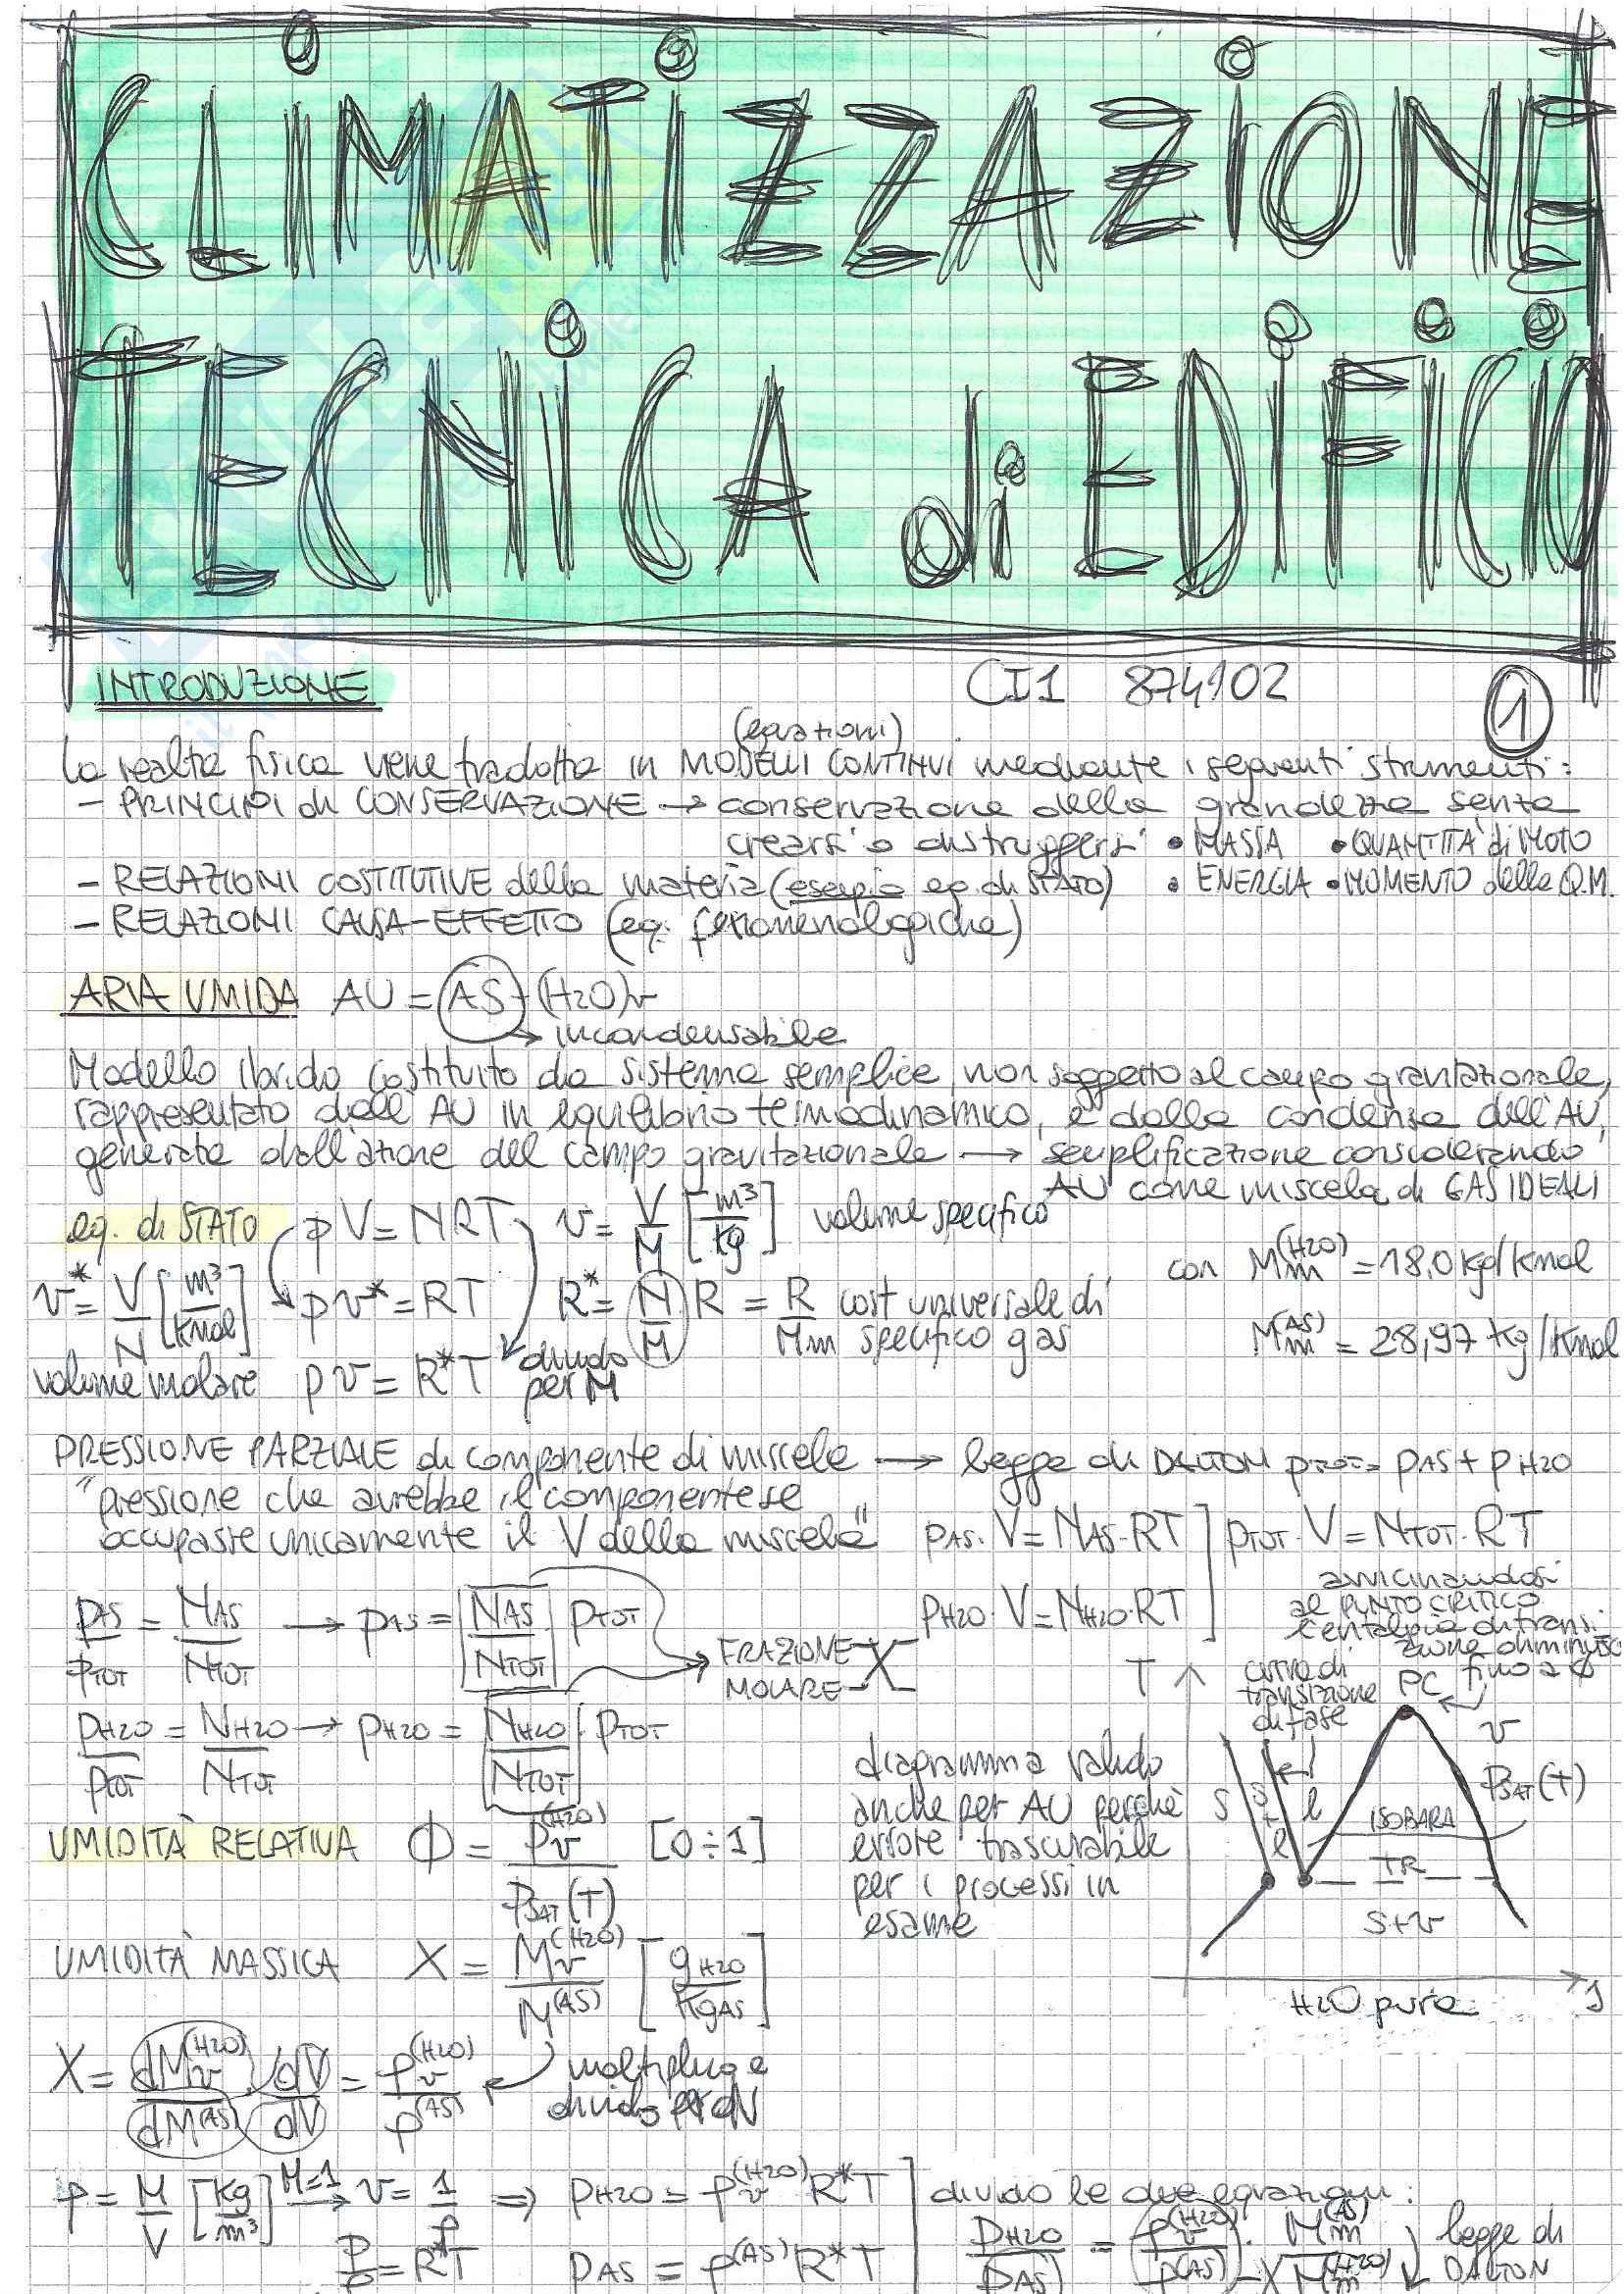 CLIMATIZZAZIONE
TECNICA di EDIFICIO
INTRODUZIONE CI1 874102 1
(equazioni)
La realtà fisica viene tradotta in MODELLI CONTINVI mediante i seguenti strumenti:
- PRINCIPI di CONSERVAZIONE → conservazione della grandezza senza
crearsi o distruggersi • MASSA • QUANTITÀ di MOTO
- RELAZIONI COSTITUTIVE della materia (esempio eq. di STATO) • ENERGIA • MOMENTO della Q.M.
- RELAZIONI CAUSA-EFFETTO (eq. fenomenologiche)
ARIA UMIDA AU = AS + (H2O)v
→ incondensabile
Modello ibrido costituito da sistema semplice, non soggetto al campo gravitazionale,
rappresentato dall'AU in equilibrio termodinamico, e dalla condensa dell'AU,
generata dall'azione del campo gravitazionale → semplificazione considerando
AU come miscela di GAS IDEALI
eq. di STATO pV = NRT v = V/M [m³/kg] volume specifico
con Mm(H2O) = 18,0 kg/kmol
v* = V/N [m³/kmol] pv* = RT R* = N/M R = R/Mm cost universale di
specifico gas
Mm(AS) = 28,97 kg/kmol
volume molare pv = R*T divido
per M
PRESSIONE PARZIALE di componente di miscela → legge di DALTON pTOT = pAS + pH2O
"pressione che avrebbe il componente se
occupasse unicamente il V della miscela" pAS · V = NAS · RT ] pTOT · V = NTOT · RT
pH2O · V = NH2O · RT
pAS/pTOT = NAS/NTOT → pAS = NAS/NTOT pTOT
FRAZIONE
MOLARE X
pH2O/pTOT = NH2O/NTOT → pH2O = NH2O/NTOT pTOT
avvicinandosi
al PUNTO CRITICO
l'entalpia di transi-
zione diminuisce
fino a ϕ
T
curva di
transizione
di fase
PC
v
pSAT(T)
s
s+l
l
ISOBARA
TR
s+v
H2O pura
diagramma valido
anche per AU perchè
errore trascurabile
per i processi in
esame
UMIDITÀ RELATIVA ϕ = pv(H2O)/pSAT(T) [0÷1]
UMIDITÀ MASSICA X = Mv(H2O)/M(AS) [gH2O/kgAS]
X = dMv(H2O)/dM(AS) · dV/dV = ρv(H2O)/ρ(AS)
moltiplico e
divido per dV
ρ = M/V [kg/m³] M=1 → v = 1/ρ ⇒ pH2O = ρv(H2O) R*T
divido le due equazioni:
p/ρ = R*T pAS = ρ(AS) R*T
pH2O/pAS = ρv(H2O)/ρ(AS) · Mm(AS)/Mm(H2O)
legge di
DALTON